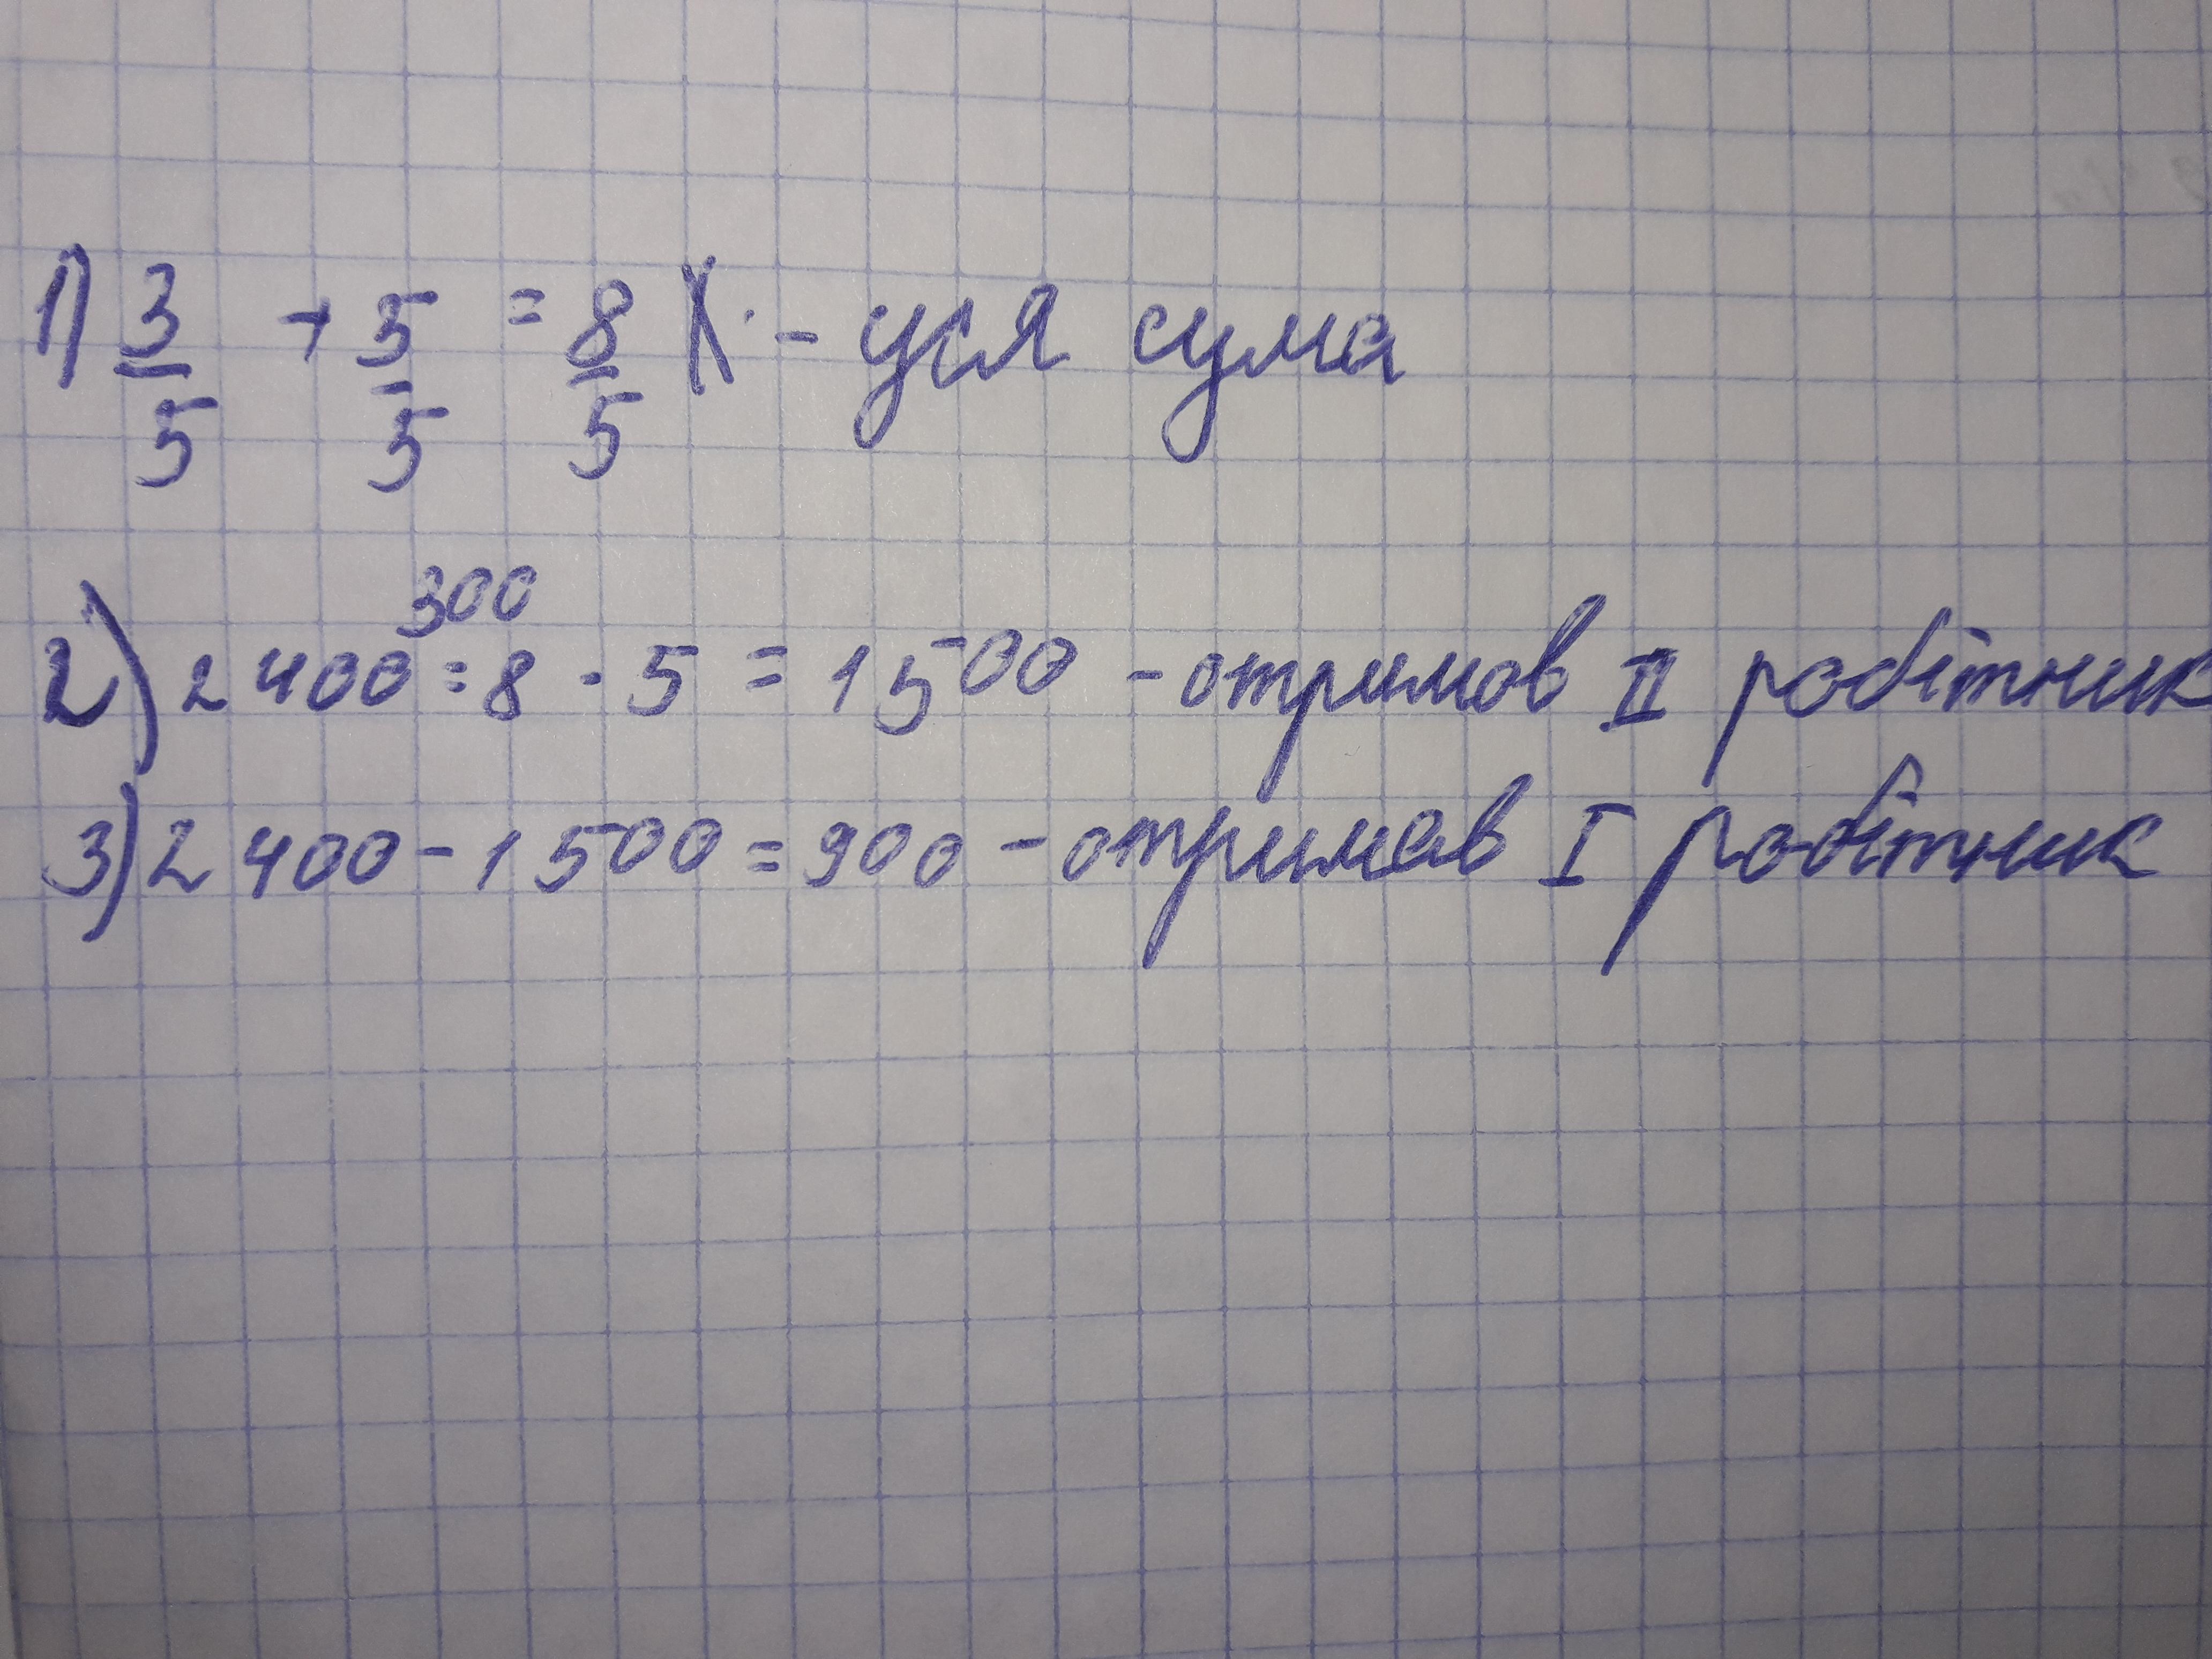 1) 3/5 + 5/5 = 8/5 X - уся сума
300
2) 2400 : 8 · 5 = 1500 - отримов II робітник
3) 2400 - 1500 = 900 - отримав I робітник